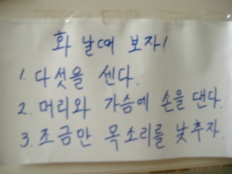 화 날때 보자!
1. 다섯을 센다.
2. 머리와 가슴에 손을 댄다.
3. 조금만 목소리를 낮추자.